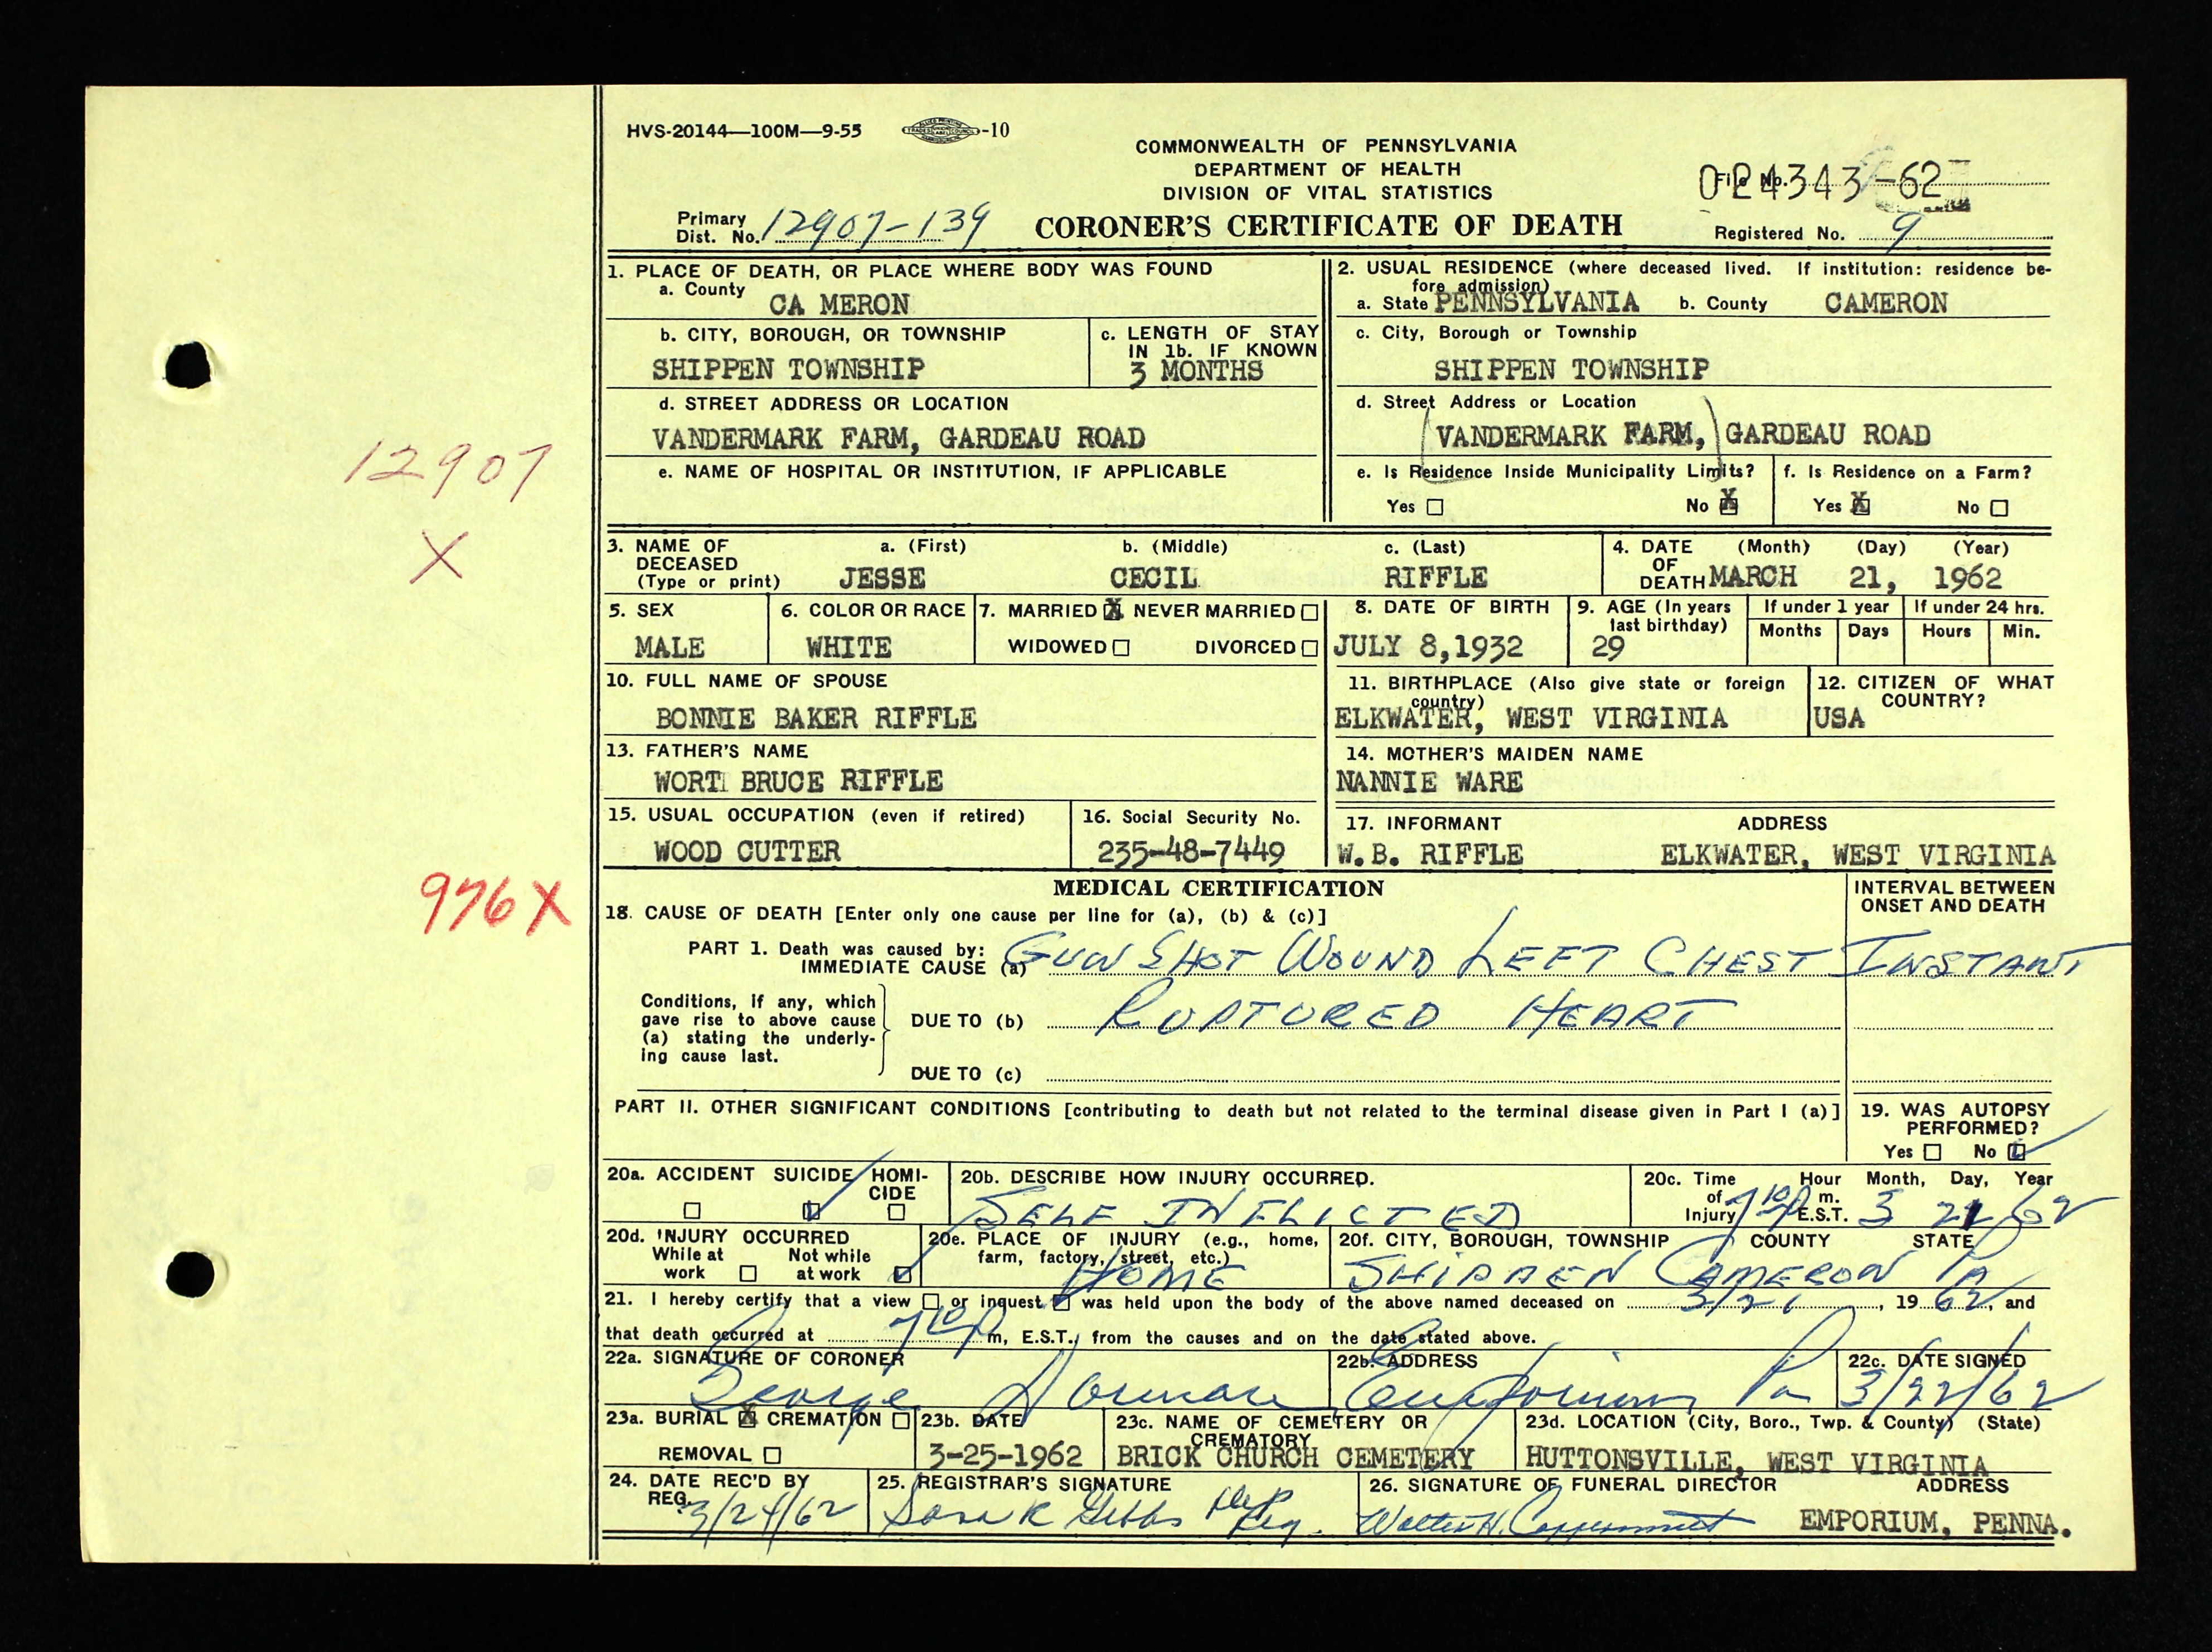 HVS-20144—100M—9-55 -10
COMMONWEALTH OF PENNSYLVANIA
DEPARTMENT OF HEALTH
DIVISION OF VITAL STATISTICS
File No. 024343-62
Primary Dist. No. 12907-139
CORONER'S CERTIFICATE OF DEATH
Registered No. 9
1. PLACE OF DEATH, OR PLACE WHERE BODY WAS FOUND
a. County
CA MERON
2. USUAL RESIDENCE (where deceased lived. If institution: residence be-
fore admission)
a. State PENNSYLVANIA b. County CAMERON
b. CITY, BOROUGH, OR TOWNSHIP
SHIPPEN TOWNSHIP
c. LENGTH OF STAY
IN 1b. IF KNOWN
3 MONTHS
c. City, Borough or Township
SHIPPEN TOWNSHIP
d. STREET ADDRESS OR LOCATION
VANDERMARK FARM, GARDEAU ROAD
d. Street Address or Location
(VANDERMARK FARM,) GARDEAU ROAD
12907
X
e. NAME OF HOSPITAL OR INSTITUTION, IF APPLICABLE
e. Is Residence Inside Municipality Limits?
Yes ☐ No ☒
f. Is Residence on a Farm?
Yes ☒ No ☐
3. NAME OF
DECEASED
(Type or print)
a. (First)
JESSE
b. (Middle)
CECIL
c. (Last)
RIFFLE
4. DATE OF DEATH (Month) (Day) (Year)
MARCH 21, 1962
5. SEX
MALE
6. COLOR OR RACE
WHITE
7. MARRIED ☒ NEVER MARRIED ☐
WIDOWED ☐ DIVORCED ☐
8. DATE OF BIRTH
JULY 8,1932
9. AGE (In years
last birthday)
29
If under 1 year
Months Days
If under 24 hrs.
Hours Min.
10. FULL NAME OF SPOUSE
BONNIE BAKER RIFFLE
11. BIRTHPLACE (Also give state or foreign
country)
ELKWATER, WEST VIRGINIA
12. CITIZEN OF WHAT
COUNTRY?
USA
13. FATHER'S NAME
WORT BRUCE RIFFLE
14. MOTHER'S MAIDEN NAME
NANNIE WARE
15. USUAL OCCUPATION (even if retired)
WOOD CUTTER
16. Social Security No.
235-48-7449
17. INFORMANT ADDRESS
W.B. RIFFLE ELKWATER, WEST VIRGINIA
976X
MEDICAL CERTIFICATION
INTERVAL BETWEEN
ONSET AND DEATH
18. CAUSE OF DEATH [Enter only one cause per line for (a), (b) & (c)]
PART 1. Death was caused by:
IMMEDIATE CAUSE (a) GUN SHOT WOUND LEFT CHEST INSTANT
Conditions, if any, which
gave rise to above cause
(a) stating the underly-
ing cause last.
DUE TO (b) RUPTURED HEART
DUE TO (c)
PART II. OTHER SIGNIFICANT CONDITIONS [contributing to death but not related to the terminal disease given in Part I (a)]
19. WAS AUTOPSY
PERFORMED?
Yes ☐ No ☑
20a. ACCIDENT SUICIDE HOMI-
CIDE
☐ ☑ ☐
20b. DESCRIBE HOW INJURY OCCURRED.
SELF INFLICTED
20c. Time of Injury Hour Month, Day, Year
7 10 P m. E.S.T. 3 21 62
20d. INJURY OCCURRED
While at work ☐ Not while at work ☑
20e. PLACE OF INJURY (e.g., home,
farm, factory, street, etc.)
HOME
20f. CITY, BOROUGH, TOWNSHIP COUNTY STATE
SHIPPEN CAMERON PA
21. I hereby certify that a view ☐ or inquest ☑ was held upon the body of the above named deceased on 3/21, 19 62, and
that death occurred at 7 10 P m, E.S.T., from the causes and on the date stated above.
22a. SIGNATURE OF CORONER
George
22b. ADDRESS
Emporium Pa
22c. DATE SIGNED
3/22/62
23a. BURIAL ☒ CREMATION ☐
REMOVAL ☐
23b. DATE
3-25-1962
23c. NAME OF CEMETERY OR
CREMATORY
BRICK CHURCH CEMETERY
23d. LOCATION (City, Boro., Twp. & County) (State)
HUTTONSVILLE, WEST VIRGINIA
24. DATE REC'D BY
REG.
3/24/62
25. REGISTRAR'S SIGNATURE
Sara K Gibbs Dep Reg.
26. SIGNATURE OF FUNERAL DIRECTOR ADDRESS
Walter H. EMPORIUM, PENNA.